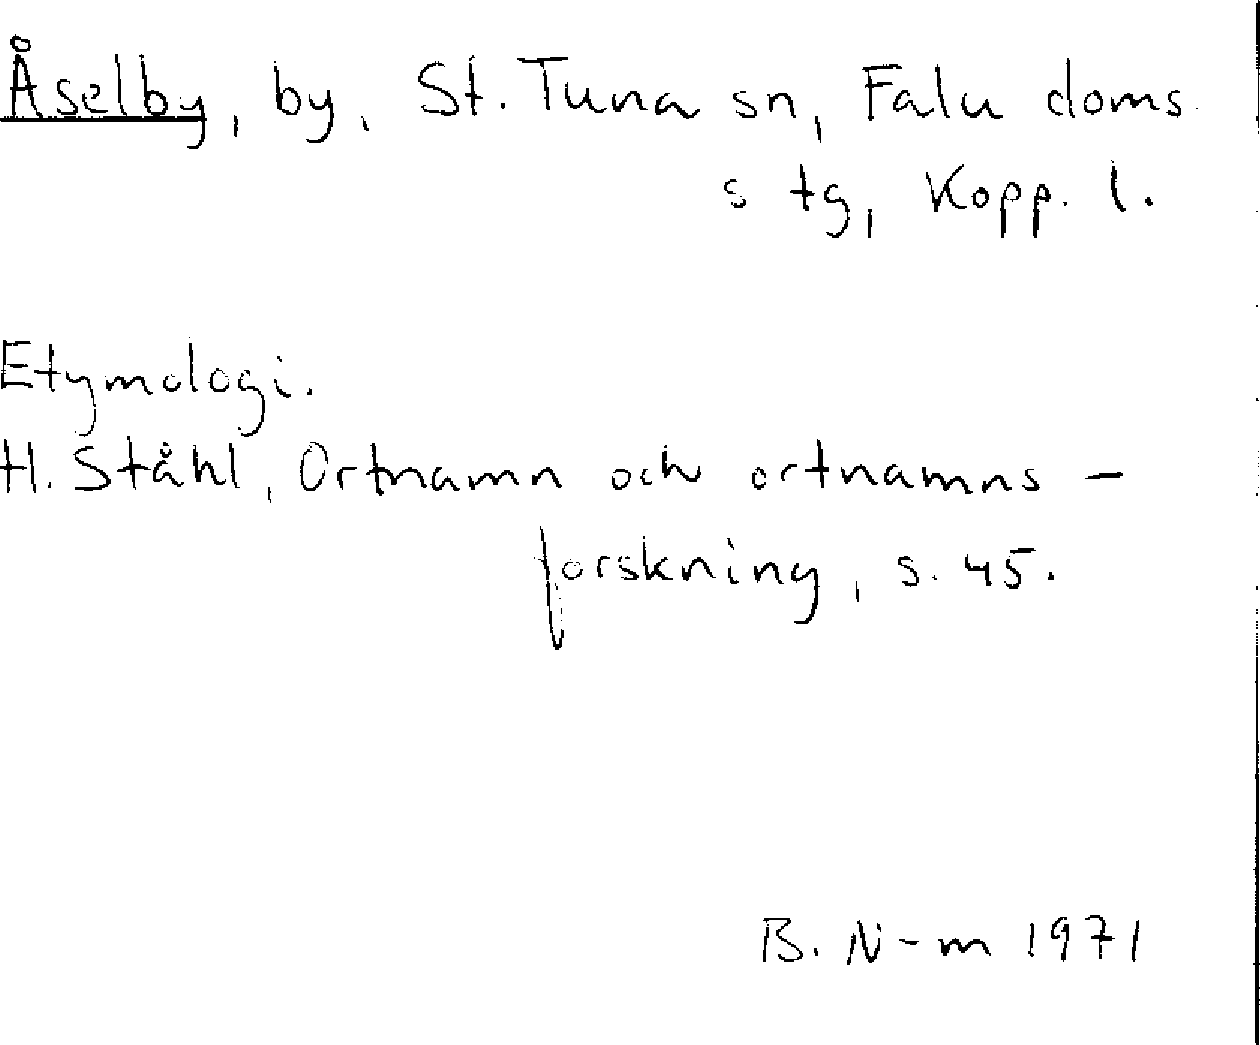 Åselby, by, St. Tuna sn, Falu doms
s tg, Kopp. l.
Etymologi.
H. Ståhl, Ortnamn och ortnamns-
forskning, s. 45.
B. N-m 1971